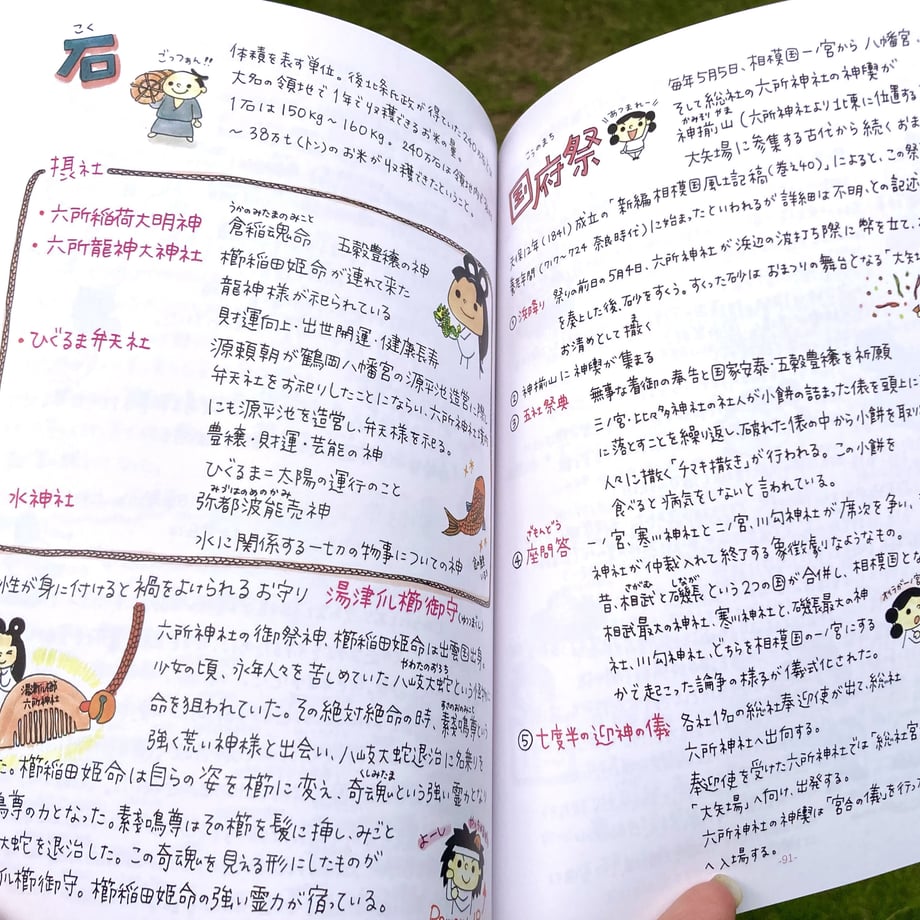 こく
石
ごっつぁん!!
体積を表す単位。後北条氏政が得ていた240万石
大名の領地で1年で収穫できるお米の量。
1石は150kg〜160kg。240万石は領地内で
〜38万t(トン)のお米が収穫できたということ。
摂社
・六所稲荷大明神
うかのみたまのみこと
倉稲魂命 五穀豊穣の神
・六所龍神大神社
櫛稲田姫命が連れて来た
龍神様が祀られている
財運向上・出世開運・健康長寿
・ひぐるま弁天社
源頼朝が鶴岡八幡宮の源平池造営に際し
弁天社をお祀りしたことにならい、六所神社
にも源平池を造営し、弁天様を祀る。
豊穣・財運・芸能の神
ひぐるま=太陽の運行のこと
水神社
みづはのめのかみ
弥都波能売神
水に関係する一切の物事についての神
性が身に付けると禍をよけられるお守り 湯津爪櫛御守
六所神社の御祭神 櫛稲田姫命は出雲国出身。
やまたのおろち
少女の頃、永年人々を苦しめていた八岐大蛇という
命を狙われていた。その絶対絶命の時、素戔嗚尊という
すさのおのみこと
強く荒い神様と出会い、八岐大蛇退治に名乗りを
た。櫛稲田姫命は自らの姿を櫛に変え、奇魂という強い霊力となり
くしみたま
鳴尊の力となった。素戔嗚尊はその櫛を髪に挿し、みごと
大蛇を退治した。この奇魂を見える形にしたものが
爪櫛御守。櫛稲田姫命の強い霊力が宿っている。
湯津爪櫛
六所神社
よーし
こうのまち
国府祭
あつまれー
毎年5月5日、相模国一ノ宮から八幡宮、
そして総社の六所神社の神輿が
かみそりやま
神揃山(六所神社より北東に位置する)
大矢場に参集する古代から続くおま
天保12年(1841)成立の「新編相模国風土記稿(巻之40)」によると、この祭
養老年間(717〜724 奈良時代)に始まったといわれるが詳細は不明、との記述
①浜降り 祭りの前日の5月4日、六所神社が浜辺の波打ち際に幣を立て、
を奏とした後、砂をすくう。すくった砂はおまつりの舞台となる「大矢
お清めとして撒く
②神揃山に神輿が集まる
③五社祭典 無事な着御の奉告と国家安泰・五穀豊穣を祈願
三ノ宮・比々多神社の社人が小餅の詰まった俵を頭上に
に落とすことを繰り返し、破れた俵の中から小餅を取り
人々に撒く「チマキ撒き」が行われる。この小餅を
食べると病気をしないと言われている。
ざもんどう
④座問答 一ノ宮、寒川神社と二ノ宮、川勾神社が席次を争い、
神社が仲裁入れて終了する象徴劇なようなもの。
さがむ しなが
昔、相武と磯長という2つの国が合併し、相模国とな
相武最大の神社、寒川神社と、磯長最大の神
社、川勾神社、どちらを相模国の一ノ宮にする
かで起こった論争の様子が儀式化された。
⑤七度半の迎神の儀 各社1名の総社奉迎使が出て、総社
六所神社へ出向する。
奉迎使を受けた六所神社では「総社宮
「大矢場」へ向け、出発する。
六所神社の神輿は「宮合の儀」を行っ
へ入場する。
-91-